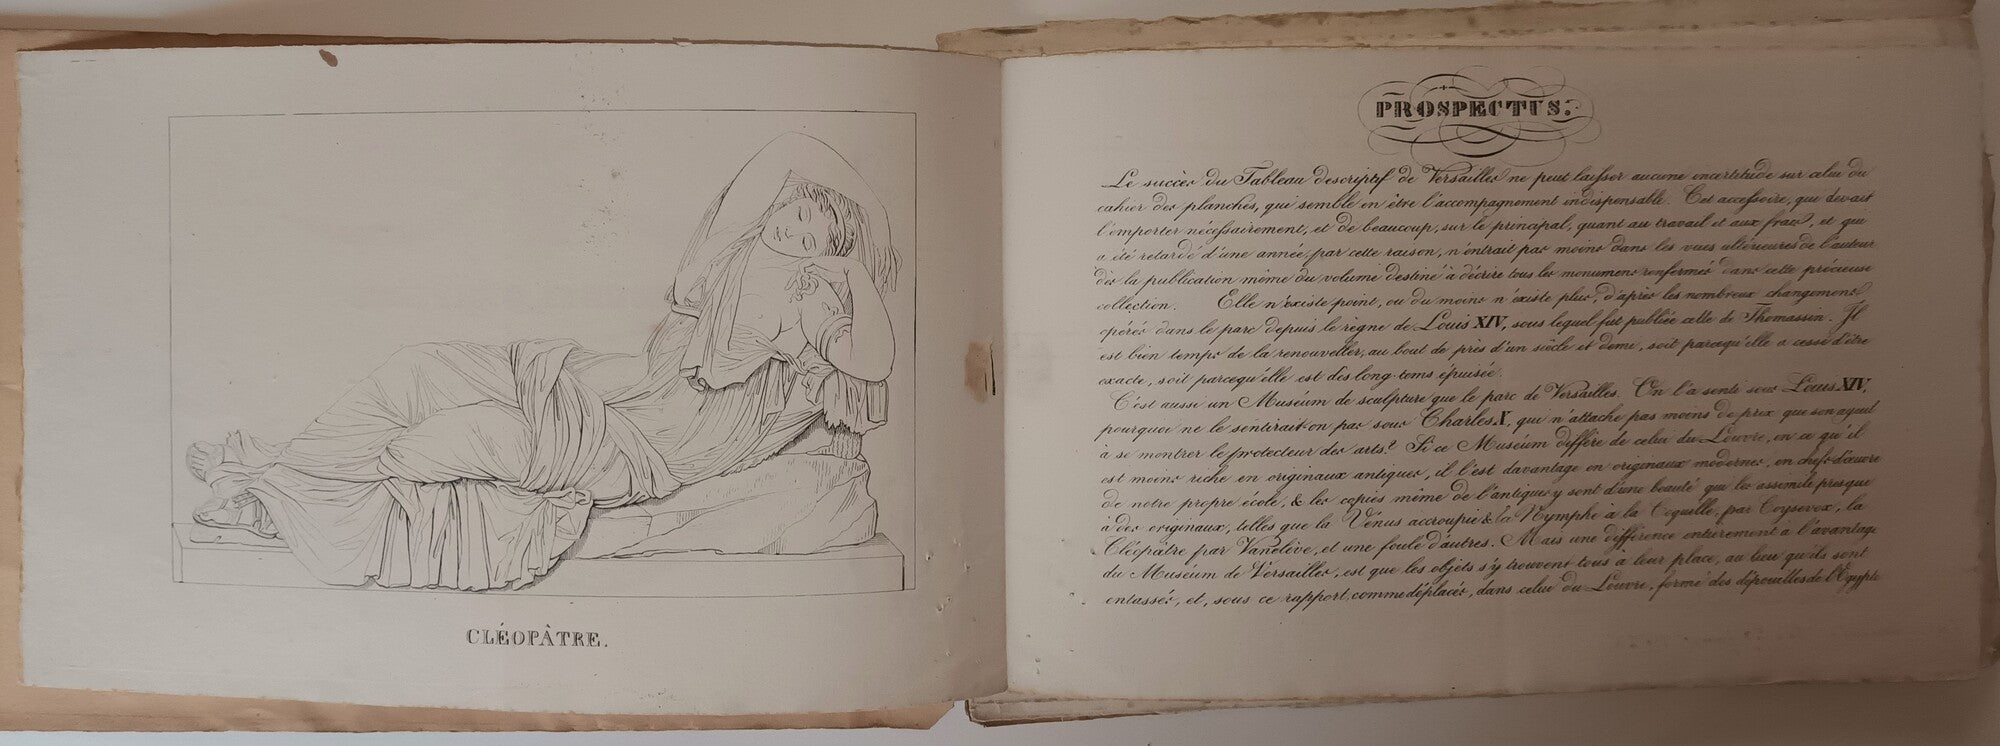 CLÉOPÂTRE.
PROSPECTUS.
Le succès du Tableau descriptif de Versailles ne peut laisser aucune incertitude sur celui du
cahier des planches, qui semble en être l'accompagnement indispensable. Cet accessoire, qui devait
l'emporter nécessairement, et de beaucoup, sur le principal, quant au travail et aux frais, et qui
a été retardé d'une année par cette raison, n'entrait pas moins dans les vues ultérieures de l'auteur
dès la publication même du volume destiné à décrire tous les monumens renfermés dans cette précieuse
collection. Elle n'existe point, ou du moins n'existe plus, d'après les nombreux changemens
opérés dans le parc depuis le règne de Louis XIV, sous lequel fut publiée celle de Thomassin. Il
est bien temps de la renouveller, au bout de près d'un siècle et demi, soit parcequ'elle a cessé d'être
exacte, soit parcequ'elle est dès long-tems épuisée.
C'est aussi un Muséum de sculpture que le parc de Versailles. On l'a senti sous Louis XIV,
pourquoi ne le sentirait-on pas sous Charles X, qui n'attache pas moins de prix que son ayeul
à se montrer le protecteur des arts? Si ce Muséum diffère de celui du Louvre, en ce qu'il
est moins riche en originaux antiques, il l'est davantage en originaux modernes, en chefs-d'œuvre
de notre propre école, & les copies même de l'antique y sont d'une beauté qui les assimile presque
à des originaux, telles que la Vénus accroupie & la Nymphe à la Coquille, par Coysevox, la
Cléopâtre par Vanclève, et une foule d'autres. Mais une différence entièrement à l'avantage
du Muséum de Versailles, est que les objets s'y trouvent tous à leur place, au lieu qu'ils sont
entassés, et, sous ce rapport, comme déplacés, dans celui du Louvre, formé des dépouilles de l'Egypte